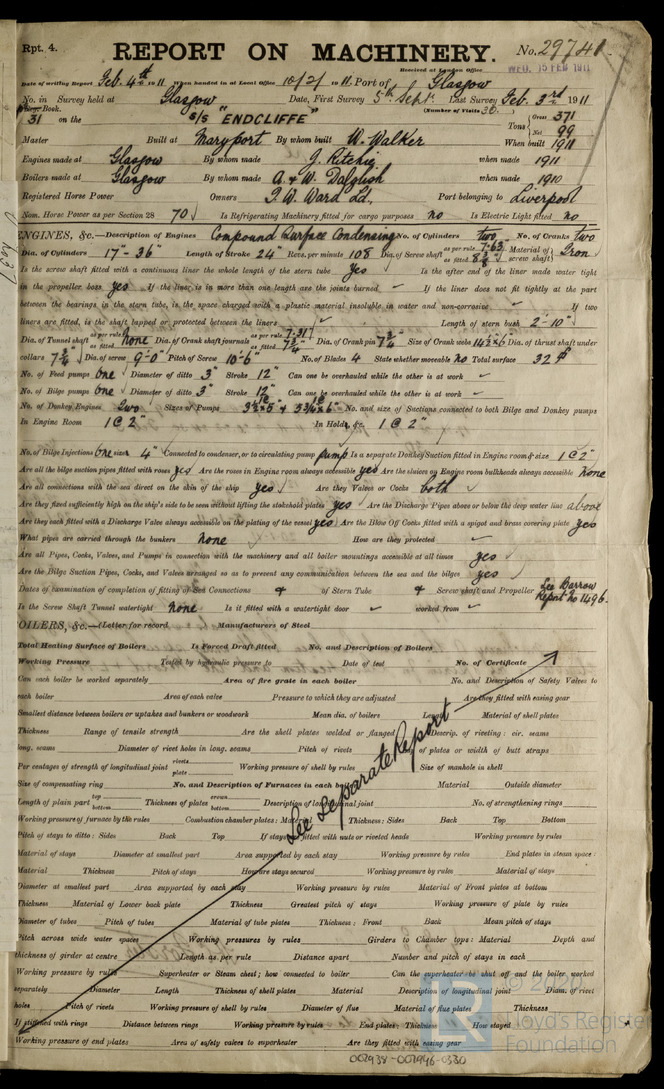 Rpt. 4. REPORT ON MACHINERY. No. 29741
Received at London Office WED. 15 FEB 1911
Date of writing Report Feb. 4th 1911 When handed in at Local Office 10/2/1911 Port of Glasgow
No. in Survey held at Glasgow Date, First Survey 5th Sept. Last Survey Feb. 3rd 1911
Reg. Book. (Number of Visits 36
31 on the s/s "ENDCLIFFE" Tons Gross 371 Net 99
Master Built at Maryport By whom built W. Walker When built 1911
Engines made at Glasgow By whom made J. Ritchie when made 1911
Boilers made at Glasgow By whom made A. & W. Dalglish when made 1910
Registered Horse Power Owners T. W. Ward Ld., Port belonging to Liverpool
Nom. Horse Power as per Section 28 70 Is Refrigerating Machinery fitted for cargo purposes no Is Electric Light fitted no
ENGINES, &c.—Description of Engines Compound Surface Condensing No. of Cylinders two No. of Cranks two
Dia. of Cylinders 17" - 36" Length of Stroke 24" Revs. per minute 108 Dia. of Screw shaft as per rule 7.63 as fitted 8 3/8 Material of screw shaft Iron
Is the screw shaft fitted with a continuous liner the whole length of the stern tube yes Is the after end of the liner made water tight
in the propeller boss yes If the liner is in more than one length are the joints burned If the liner does not fit tightly at the part
between the bearings in the stern tube, is the space charged with a plastic material insoluble in water and non-corrosive If two
liners are fitted, is the shaft lapped or protected between the liners Length of stern bush 2'-10"
Dia. of Tunnel shaft as per rule as fitted None Dia. of Crank shaft journals as per rule 7.31 as fitted 7 3/4" Dia. of Crank pin 7 3/4" Size of Crank webs 14 1/2 x 6 Dia. of thrust shaft under
collars 7 3/4" Dia. of screw 9'-0" Pitch of Screw 10'-6" No. of Blades 4 State whether moveable no Total surface 32
No. of Feed pumps one Diameter of ditto 3" Stroke 12" Can one be overhauled while the other is at work
No. of Bilge pumps one Diameter of ditto 3" Stroke 12" Can one be overhauled while the other is at work
No. of Donkey Engines Two Sizes of Pumps No. and size of Suctions connected to both Bilge and Donkey pumps
In Engine Room 1 @ 2" In Holds, &c. 1 @ 2"
No. of Bilge Injections one sizes 4" Connected to condenser, or to circulating pump pump Is a separate Donkey Suction fitted in Engine room & size 1 @ 2"
Are all the bilge suction pipes fitted with roses yes Are the roses in Engine room always accessible yes Are the sluices on Engine room bulkheads always accessible None
Are all connections with the sea direct on the skin of the ship yes Are they Valves or Cocks both
Are they fixed sufficiently high on the ship's side to be seen without lifting the stokehold plates yes Are the Discharge Pipes above or below the deep water line above
Are they each fitted with a Discharge Valve always accessible on the plating of the vessel yes Are the Blow Off Cocks fitted with a spigot and brass covering plate yes
What pipes are carried through the bunkers none How are they protected
Are all Pipes, Cocks, Valves, and Pumps in connection with the machinery and all boiler mountings accessible at all times yes
Are the Bilge Suction Pipes, Cocks, and Valves arranged so as to prevent any communication between the sea and the bilges yes
Dates of examination of completion of fitting of Sea Connections of Stern Tube Screw shaft and Propeller See Barrow Report No 1496.
Is the Screw Shaft Tunnel watertight none Is it fitted with a watertight door worked from
OILERS, &c.—(Letter for record Manufacturers of Steel
Total Heating Surface of Boilers Is Forced Draft fitted No. and Description of Boilers
Working Pressure Tested by hydraulic pressure to Date of test No. of Certificate
Can each boiler be worked separately Area of fire grate in each boiler No. and Description of Safety Valves to
each boiler Area of each valve Pressure to which they are adjusted Are they fitted with easing gear
Smallest distance between boilers or uptakes and bunkers or woodwork Mean dia. of boilers Length Material of shell plates
Thickness Range of tensile strength Are the shell plates welded or flanged Descrip. of riveting: cir. seams
long. seams Diameter of rivet holes in long. seams Pitch of rivets of plates or width of butt straps
Per centages of strength of longitudinal joint rivets plate Working pressure of shell by rules Size of manhole in shell
Size of compensating ring No. and Description of Furnaces in each boiler Material Outside diameter
Length of plain part top bottom Thickness of plates crown bottom Description of longitudinal joint No. of strengthening rings
Working pressure of furnace by the rules Combustion chamber plates: Material Thickness: Sides Back Top Bottom
Pitch of stays to ditto: Sides Back Top If stays fitted with nuts or riveted heads Working pressure by rules
Material of stays Diameter at smallest part Area supported by each stay Working pressure by rules End plates in steam space:
Material Thickness Pitch of stays How are stays secured Working pressure by rules Material of stays
Diameter at smallest part Area supported by each stay Working pressure by rules Material of Front plates at bottom
Thickness Material of Lower back plate Thickness Greatest pitch of stays Working pressure of plate by rules
Diameter of tubes Pitch of tubes Material of tube plates Thickness: Front Back Mean pitch of stays
Pitch across wide water spaces Working pressures by rules Girders to Chamber tops: Material Depth and
thickness of girder at centre Length as per rule Distance apart Number and pitch of stays in each
Working pressure by rules Superheater or Steam chest; how connected to boiler Can the superheater be shut off and the boiler worked
separately Diameter Length Thickness of shell plates Material Description of longitudinal joint Diam. of rivet
holes Pitch of rivets Working pressure of shell by rules Diameter of flue Material of flue plates Thickness
If stiffened with rings Distance between rings Working pressure by rules End plates: Thickness How stayed
Working pressure of end plates Area of safety valves to superheater Are they fitted with easing gear
See Separate Report
© 20
Lloyd's Register
Foundation
002938-002946-0330